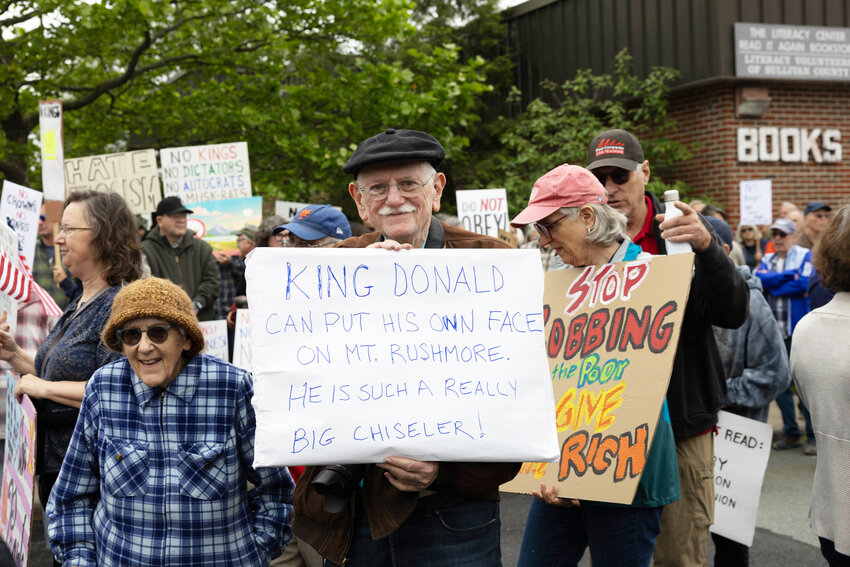 THE LITERACY CENTER
READ IT AGAIN BOOKSTORE
LITERACY VOLUNTEERS
OF SULLIVAN COUNTY
BOOKS
KINGS
HATE
NO KINGS
NO DICTATORS
NO AUTOCRATS
MUSK-RATS
DO NOT
OBEY!
KING DONALD
CAN PUT HIS OWN FACE
ON MT. RUSHMORE.
HE IS SUCH A REALLY
BIG CHISELER!
STOP
ROBBING
the POOR
GIVE
the RICH
READ: